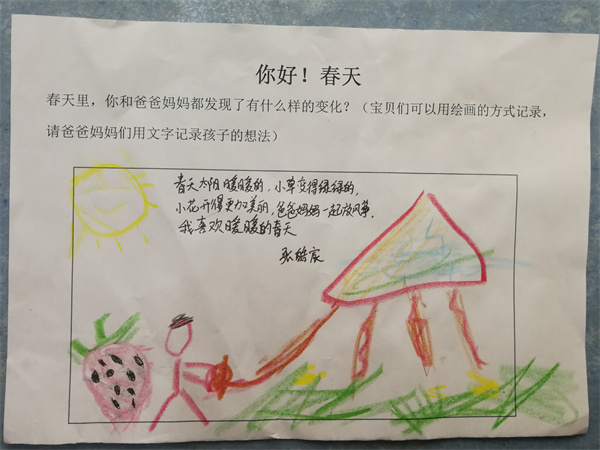 你好！春天
春天里，你和爸爸妈妈都发现了有什么样的变化？（宝贝们可以用绘画的方式记录，
请爸爸妈妈们用文字记录孩子的想法）
春天太阳暖暖的，小草变得绿绿的，
小花开得更加美丽，爸爸妈妈一起放风筝，
我喜欢暖暖的春天